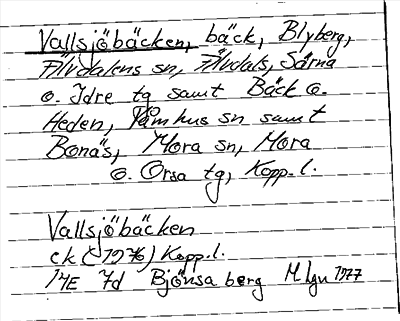 Vallsjöbäcken, bäck, Blyberg,
Älvdalens sn, Älvdals, Särna
o. Idre tg samt Bäck o.
Heden, Våmhus sn samt
Bonäs, Mora sn, Mora
o. Orsa tg, Kopp. l.
Vallsjöbäcken
ck (1976) Kopp. l.
14E 7d Bjönsaberg M lgn 1977